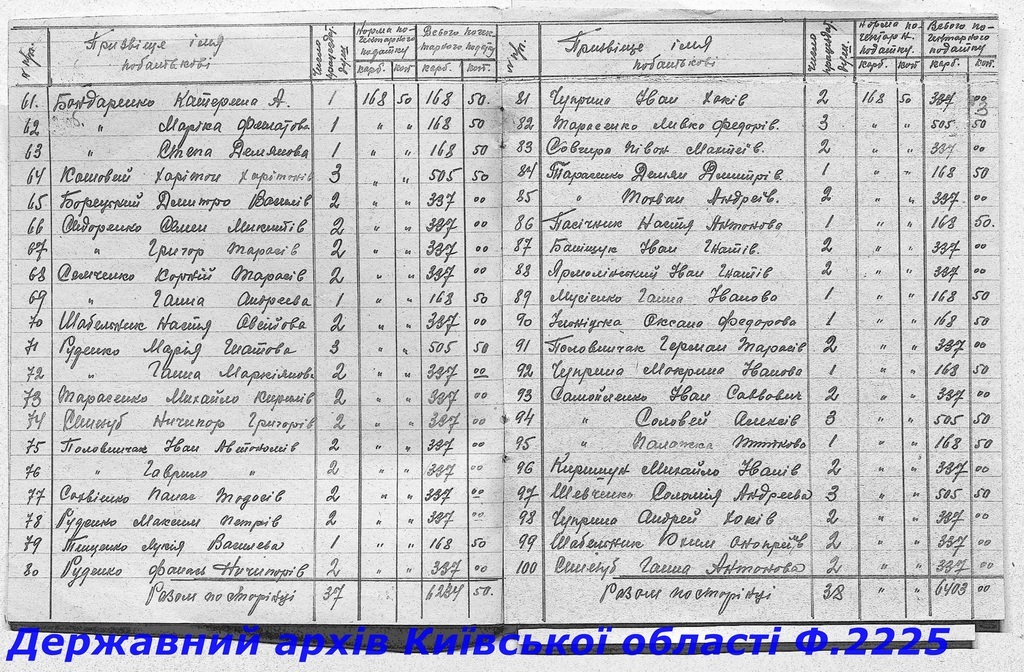 № п/п. Призвіще імя побатькові Число працездат. душ Норма почихтарного податку карб. коп Всього почих тарного податку карб. коп.
61. Бондаренко Катерина А. 1 168 50 168 50.
62 " Маріка Филатова 1 " " 168 50
63 " Степа Демянова 1 " " 168 50
64 Кашовий Харітон Харітонів 3 " " 505 50
65 Борецький Дмитро Василів 2 " " 337 00
66 Сидоренко Семен Микитів 2 " " 337 00
67 " Григор Тарасів 2 " " 337 00
68 Семченко Корній Тарасів 2 " " 337 00
69 " Ганна Андреева 1 " " 168 50
70 Шабельник Настя 2 " " 337 00
71 Руденко Марія Гнатова 3 " " 505 50
72 " Ганна Маркіянов 2 " " 337 00
73 Тарасенко Михайло Кирилів 2 " " 337 00
74 Ничипор Григорів 2 " " 337 00
75 Половинчак Іван 2 " " 337 00
76 " Гаврило " 2 " " 337 00
77 Панас Тодосів 2 " " 337 00
78 Руденко Максим Петрів 2 " " 337 00
79 Тищенко Лукія Василева 1 " " 168 50
80 Руденко Фанась Ничипорів 2 " " 337 00
Разом по сторінці 37 6234 50.
№ п/п. Призвіще імя побатькові Число працездат. душ Норма по карб. коп Всього податку карб. коп.
81 Чуприна Іван Хоків 2 168 50 337 00
82 Тарасенко Ливко Федорів. 3 " " 505 50
83 Совгира Півон Матвіїв. 2 " " 337 00
84 Тарасенко Демян Дмитрів. 1 " " 168 50
85 " Андреїв. 2 " " 337 00
86 Пасічник Настя Антонова 1 " " 168 50.
87 Іван Гнатів. 2 " " 337 00
88 Ярмолінський Іван Гнатів 2 " " 337 00
89 Мусієнко Ганна Іванова 1 " " 168 50
90 Оксана Федорова 1 " " 168 50
91 Половинчак Герман Тарасів 2 " " 337 00
92 Чуприна Мокрина Іванова 1 " " 168 50
93 Самойленко Іван Саввович 2 " " 337 00
94 " Соловей Алексів 3 " " 505 50
95 " Палажка 1 " " 168 50
96 Киришун Михайло Іванів 2 " " 337 00
97 Шевченко Соломія Андреева 3 " " 505 50
98 Чуприна Андрей Хоків 2 " " 337 00
99 Шабельник Юхим Онопріїв 2 " " 337 00
100 Ганна Антонова 2 " " 337 00
Разом по сторінці 38 6403 00
Державний архів Київської області Ф.2225